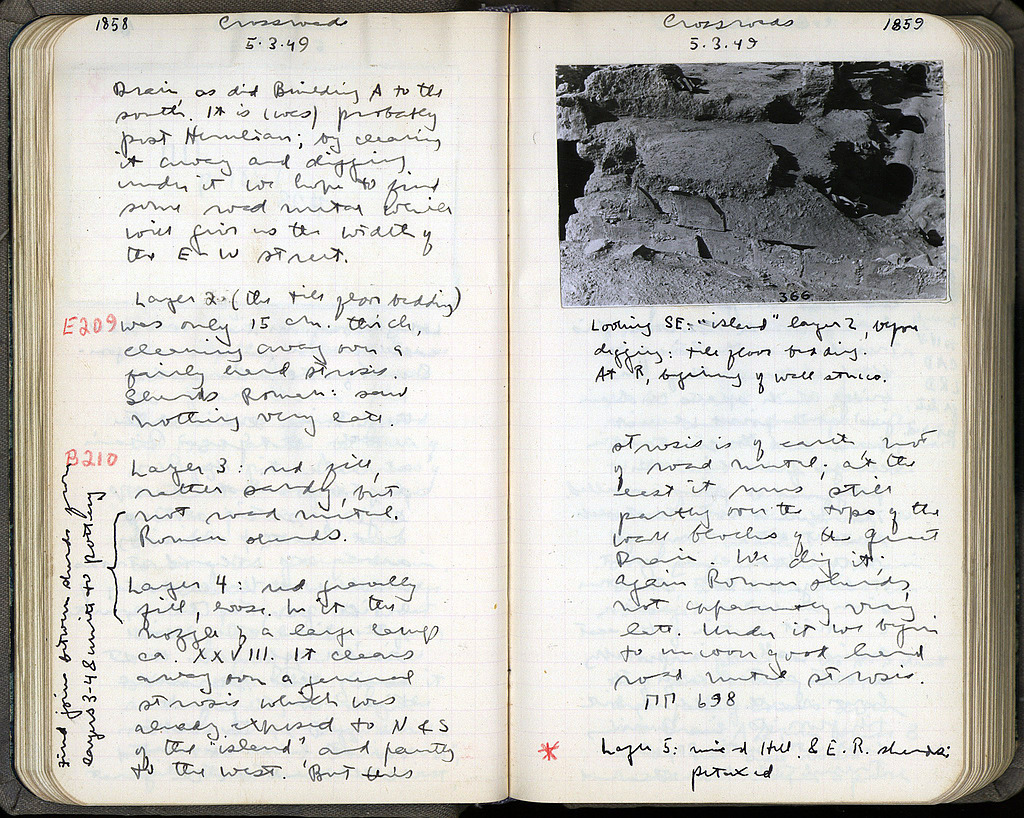 1858
Crossroads
5.3.49
Drain as did Building A to the
south. It is (was) probably
post Herulian; by clearing
it away and digging
under it we hope to find
some road metal which
will give us the width of
the E-W street.
Layer 2 (the tile floor bedding)
E209 was only 15 cm. thick,
clearing away over a
fairly hard strosis.
Sherds Roman: said
nothing very late.
B210
Layer 3: red fill,
rather sandy, but
not road metal.
Roman sherds.
Layer 4: red gravelly
fill, loose. In it the
nozzle of a large lamp
ca. XXVIII. It clears
away over a general
strosis which was
already exposed to N & S
of the "island" and partly
to the west. But this
find joins between sherds from
layers 3-4 & unites to pottery
Crossroads
1859
5.3.49
366
Looking SE: "island" layer 2, before
digging: tile floor bedding.
At R, beginning of wall strosis.
strosis is of earth not
of road metal; at the
east it runs still
partly over the tops of the
wall blocks of the Great
Drain. We dig it:
again Roman sherds
not apparently very
late. Under it we begin
to uncover good hard
road metal strosis.
ΠΠ 698
* Layer 5: mixed Hell. & E.R. sherds: